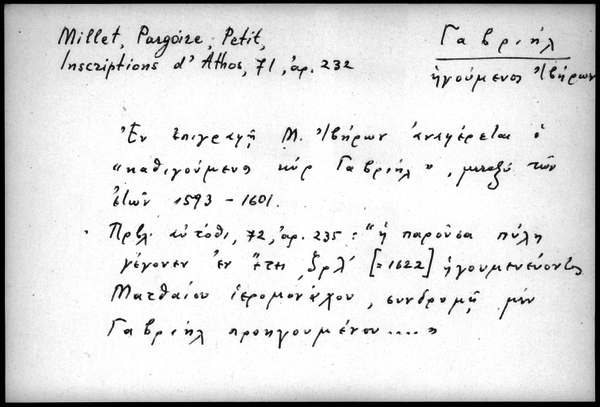 Millet, Pargoire, Petit,
Inscriptions d'Athos, 71, ἀρ. 232
Γαβριήλ
ἡγούμενος Ἰβήρων
Ἐν ἐπιγραφῇ Μ. Ἰβήρων ἀναφέρεται ὁ
“καθηγούμενος κύρ Γαβριήλ”, μεταξύ τῶν
ἐτῶν 1593 - 1601.
Πρβλ. αὐτόθι, 72, ἀρ. 235: “ἡ παροῦσα πύλη
γέγονεν ἐν ἔτει ͵ζρλ´ [=1622] ἡγουμενεύοντος
Ματθαίου ἱερομονάχου, συνδρομῇ μὲν
Γαβριήλ προηγουμένου....”